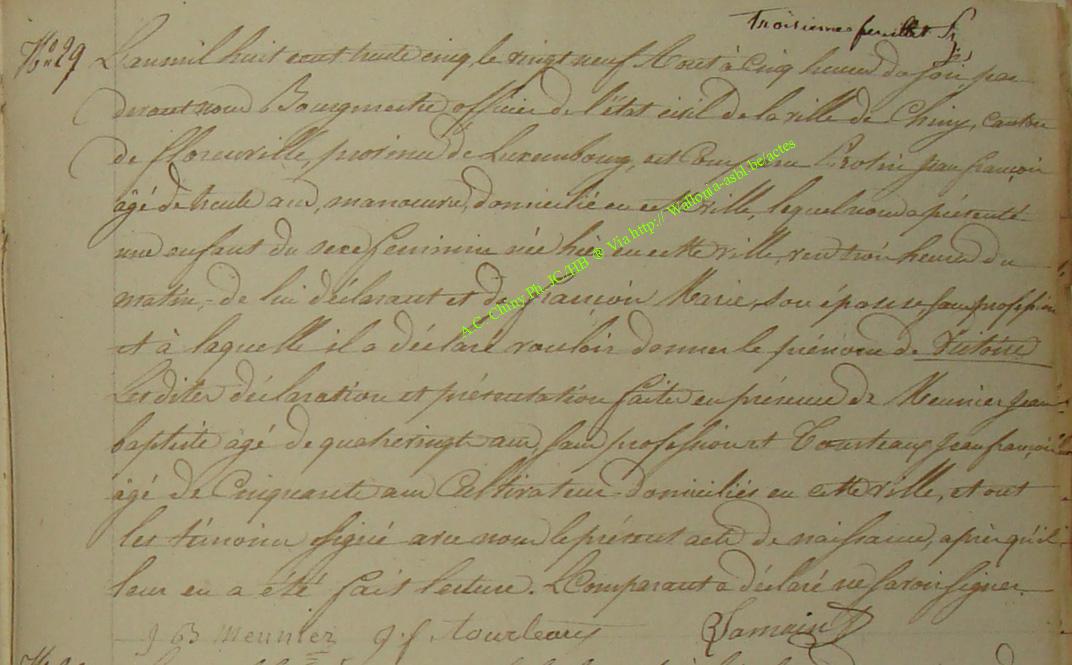 Troisième feuillet
No 29 L'an mil huit cent trente cinq, le vingt neuf Aout à cinq heures du soir par
devant nous Bourgmestre officier de l'état civil de la ville de Chiny, canton
de florenville, province de Luxembourg, est Comparu jean françois
âgé de trente ans, manoeuvre, domicilié en cette ville, lequel nous a présenté
une enfant du sexe feminin née hier en cette ville, vers trois heures du
matin, de lui déclarant et de françois Marie, son épouse, sans profession
et à laquelle il a déclaré vouloir donner le prénom de Victoire
Lesdites déclaration et présentation faites en présence de Meunier jean
baptiste âgé de quatrevingt ans, sans profession et Tourteaux jean françois
âgé de Cinquante ans Cultivateur domiciliés en cette ville, et ont
les témoins signé avec nous le présent acte de naissance, après qu'il
leur en a été fait lecture. Le Comparant a déclaré ne savoir signer
j B Meunier j. f. tourteaux
A.C. Chiny Ph JC/HB ® Via http:// Wallonia-asbl.be/actes